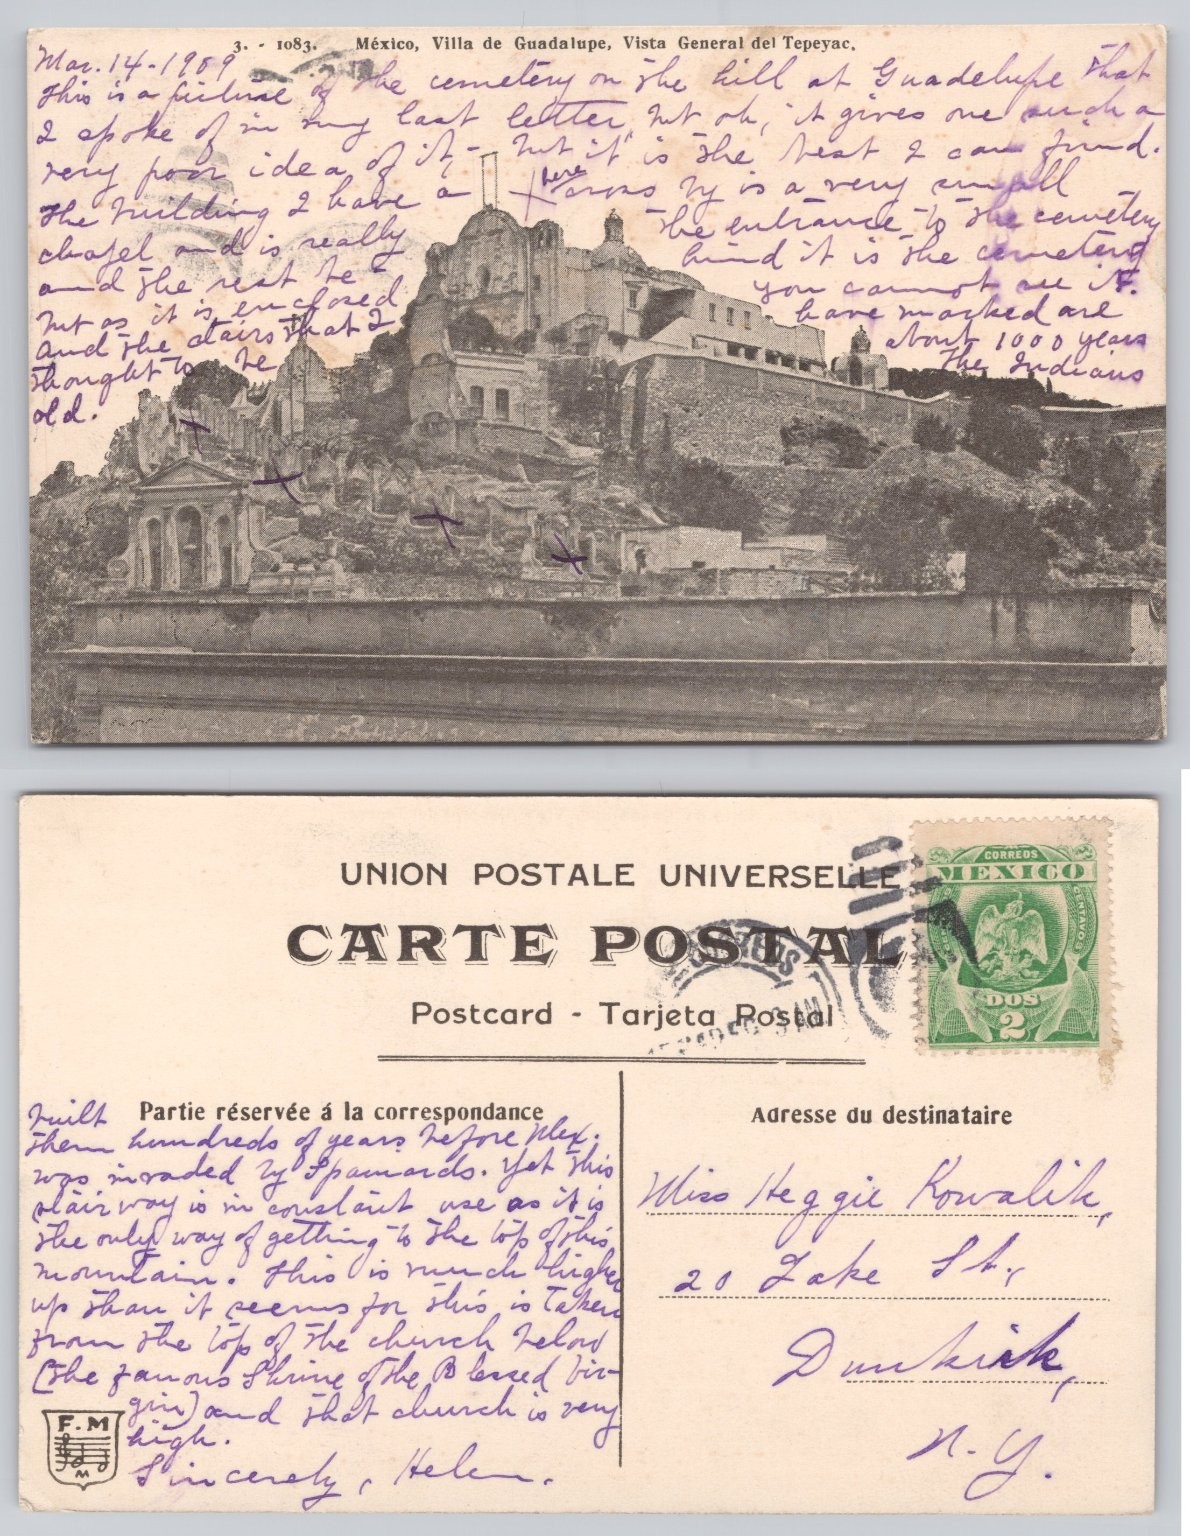 3. - 1083. México, Villa de Guadalupe, Vista General del Tepeyac.
Mar. 14 - 1909
This is a picture of the cemetery on the hill at Guadelupe that
I spoke of in my last letter, but oh, it gives one such a
very poor idea of it, - but it is the best I can find.
The building I have a X here cross by is a very small
chapel and is really the entrance to the cemetery
and the rest behind it is the cemetery
but as it is enclosed you cannot see it.
and the stairs that I have marked are
thought to be about 1000 years
old. The Indians
UNION POSTALE UNIVERSELLE
CARTE POSTAL
Postcard - Tarjeta Postal
CORREOS
MEXICO
CENTAVOS
DOS
2
CORREOS
9 AM
Partie réservée á la correspondance
built
them hundreds of years before Mex.
was invaded by Spaniards. Yet this
stairway is in constant use as it is
the only way of getting to the top of this
mountain. This is much higher
up than it seems for this is taken
from the top of the church below
(the famous Shrine of the Blessed Vir-
gin) and that church is very
high.
Sincerely, Helen.
F. M
Adresse du destinataire
Miss Heggie Kowalik,
20 Lake St.,
Dunkirk,
N. Y.